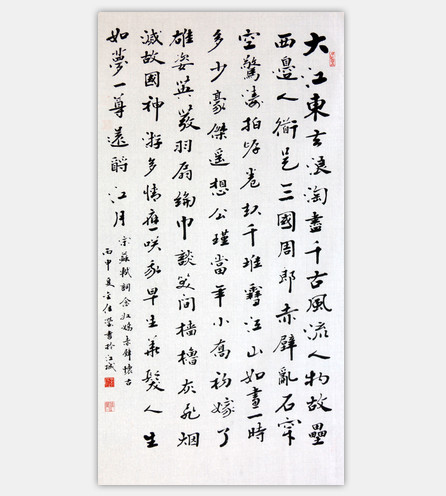 大江東去浪淘盡千古風流人物故壘
西邊人衜是三國周郎赤壁亂石穿
空驚濤拍岸卷起千堆雪江山如畫一時
多少豪傑遥想公瑾當年小喬初嫁了
雄姿英發羽扇綸巾談笑间檣櫓灰飛烟
滅故國神游多情應笑我早生華髮人生
如夢一尊還酹江月
宋蘇軾詞念奴嬌赤壁懷古
丙申夏書於江城